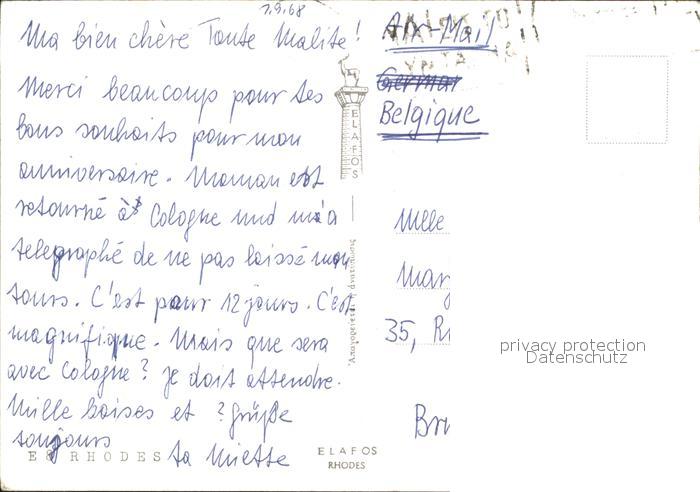 1.9.68
Ma bien chère Tante Malite!
Merci beaucoup pour tes
bons souhaits pour mon
anniversaire. Maman est
retourné à Cologne und m'a
telegraphé de ne pas laissé mon
tours. C'est pour 12 jours. C'est
magnifique. Mais que sera
avec Cologne? Je doit attendre.
Mille baises et ? grüße
toujours
ta Miette
E 8 RHODES
ELAFOS
Ἀπαγορεύεται ἡ ἀνατύπωσις
ELAFOS
RHODES
Air-Mail
German
Belgique
Mlle
Mar
35, R
Bru
privacy protection
Datenschutz